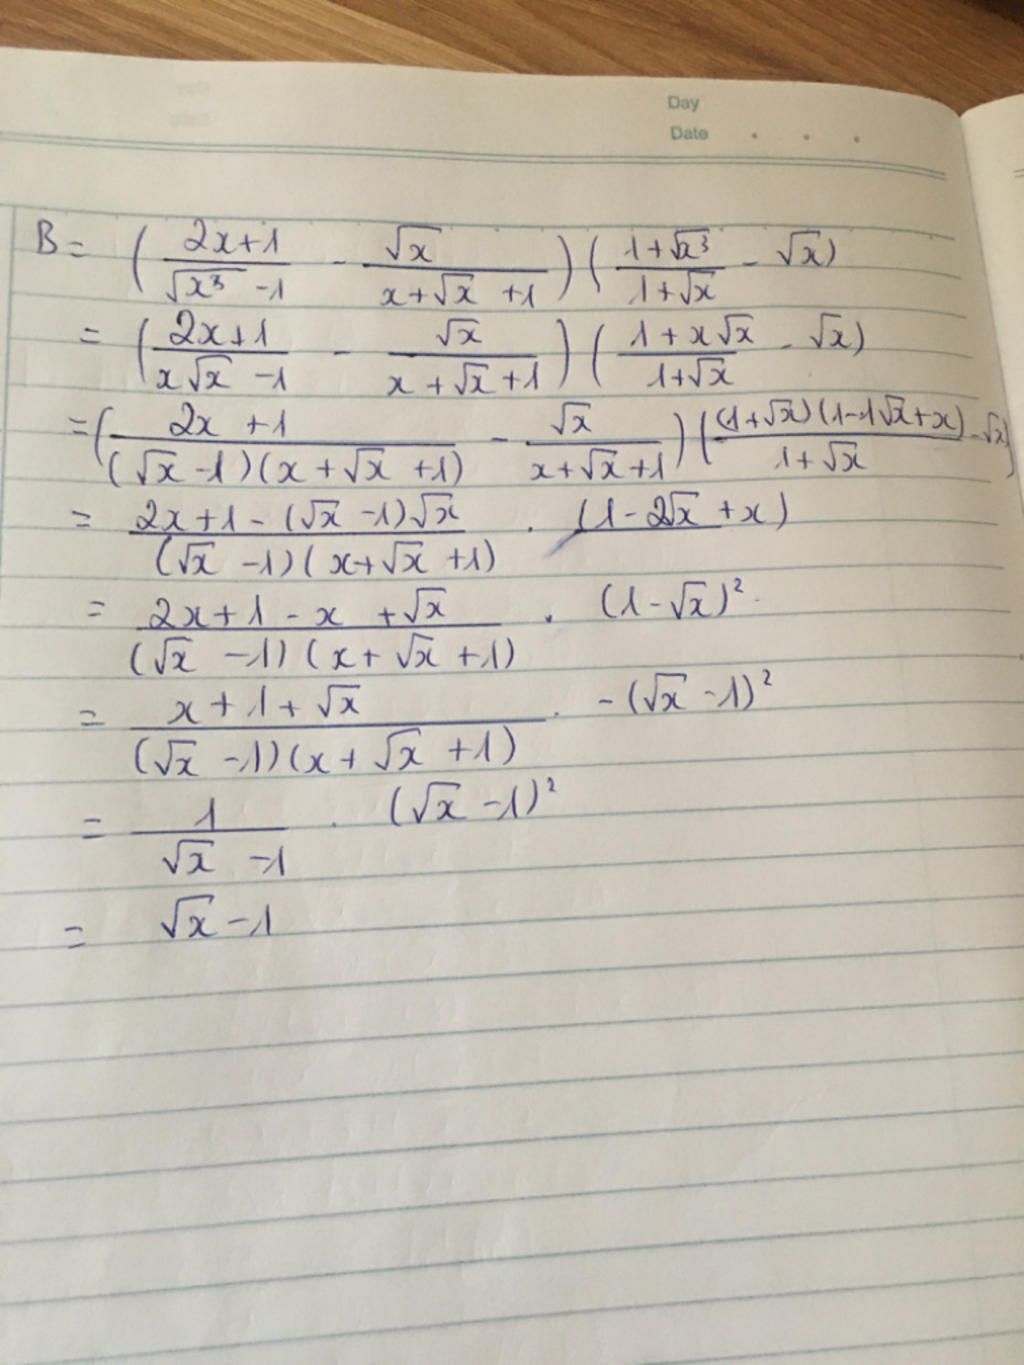 Day
Date . . .
B = ( (2x+1)/(√x³ -1) - √x/(x+√x +1) ) ( (1+√x³)/(1+√x) - √x )
= ( (2x+1)/(x√x -1) - √x/(x+√x+1) ) ( (1+x√x)/(1+√x) - √x )
= ( (2x +1)/((√x -1)(x+√x +1)) - √x/(x+√x+1) ) ( ((1+√x)(1-1√x+x))/(1+√x) - √x )
= (2x+1-(√x -1)√x)/((√x -1)(x+√x +1)) . (1-2√x +x)
= (2x+1-x +√x)/((√x -1)(x+√x +1)) . (1-√x)².
= (x+1+√x)/((√x -1)(x+√x +1)) . -(√x -1)²
= 1/(√x -1) . (√x -1)²
= √x -1